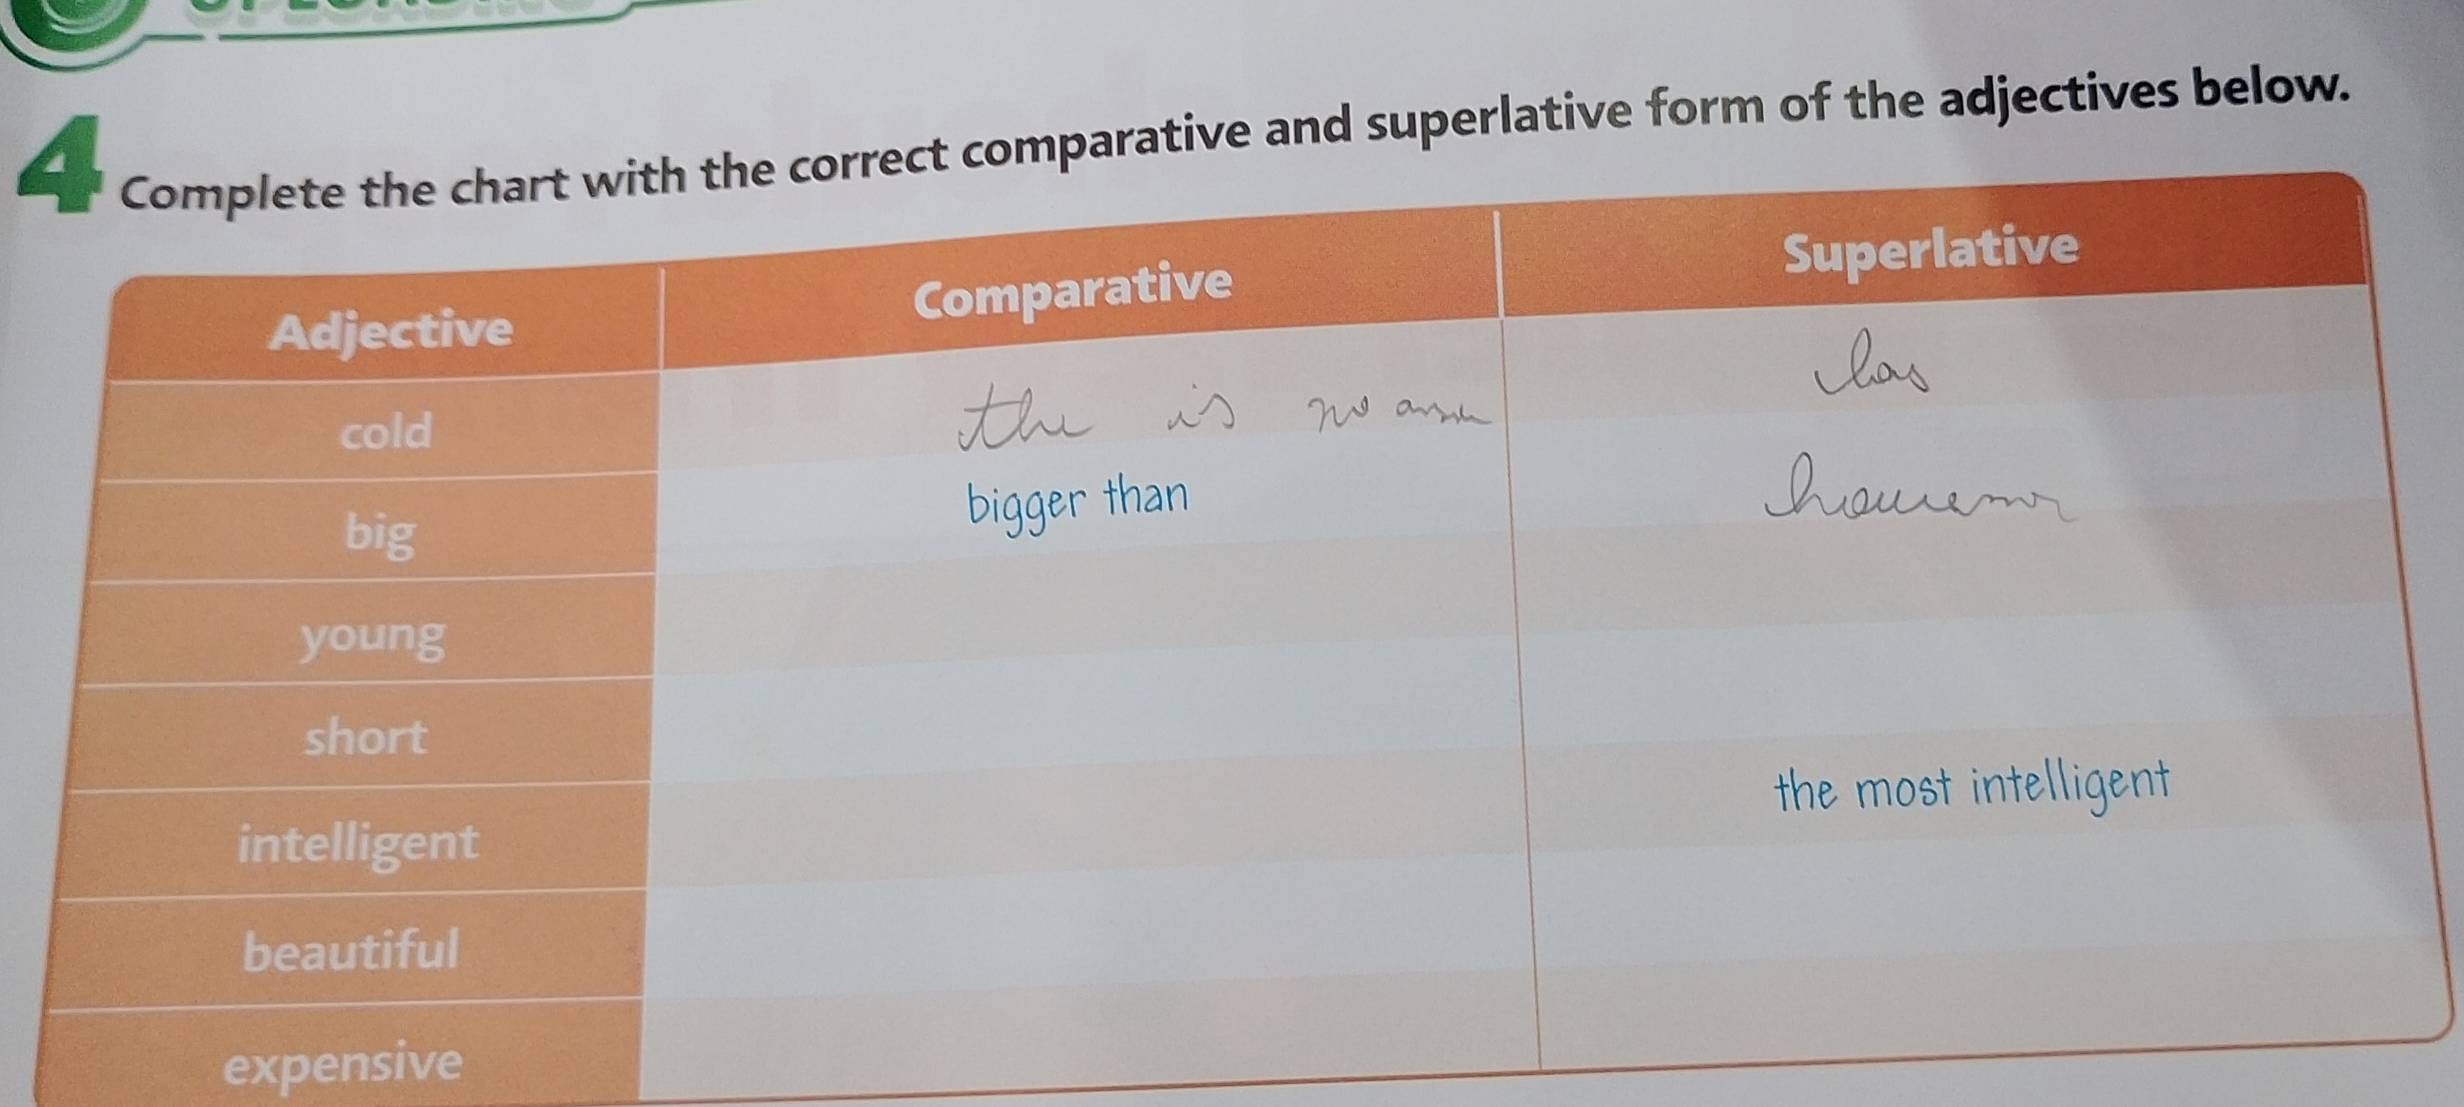 4 Complete the chart with the correct comparative and superlative form of the adjectives below.
Adjective Comparative Superlative
cold the is no
big bigger than
young
short
intelligent the most intelligent
beautiful
expensive